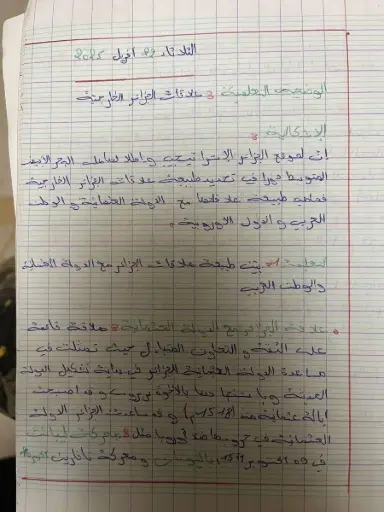 الثلاثاء 22 أفريل 2025
الوضعية التعلمية : علاقات الجزائر الخارجية
الإشكالية :
إن لموقع الجزائر الاستراتيجي وإطلالة لساحل البحر الأبيض
المتوسط دورا في تحديد طبيعة علاقات الجزائر الخارجية
فماهي طبيعة علاقاتها مع الدولة العثمانية و الوطن
العربي و الدول الأوروبية .
التعليمة : بين طبيعة علاقات الجزائر مع الدولة العثمانية
والوطن العربي
علاقة الجزائر مع الدولة العثمانية : علاقة قائمة
على الثقة و التعاون المتبادل حيث تمثلت في
مساعدة الدولة العثمانية الجزائر في بداية تشكيل الدولة
الحديثة بالإخوة بربروس و قد أصبحت
إيالة عثمانية منذ (1518م) و قد ساعدت الجزائر الدولة
العثمانية في حروبها ضد أوروبا مثل : معركة ليبانت
في 09 أكتوبر 1571 باليونان و معركة نافارين أكتوبر